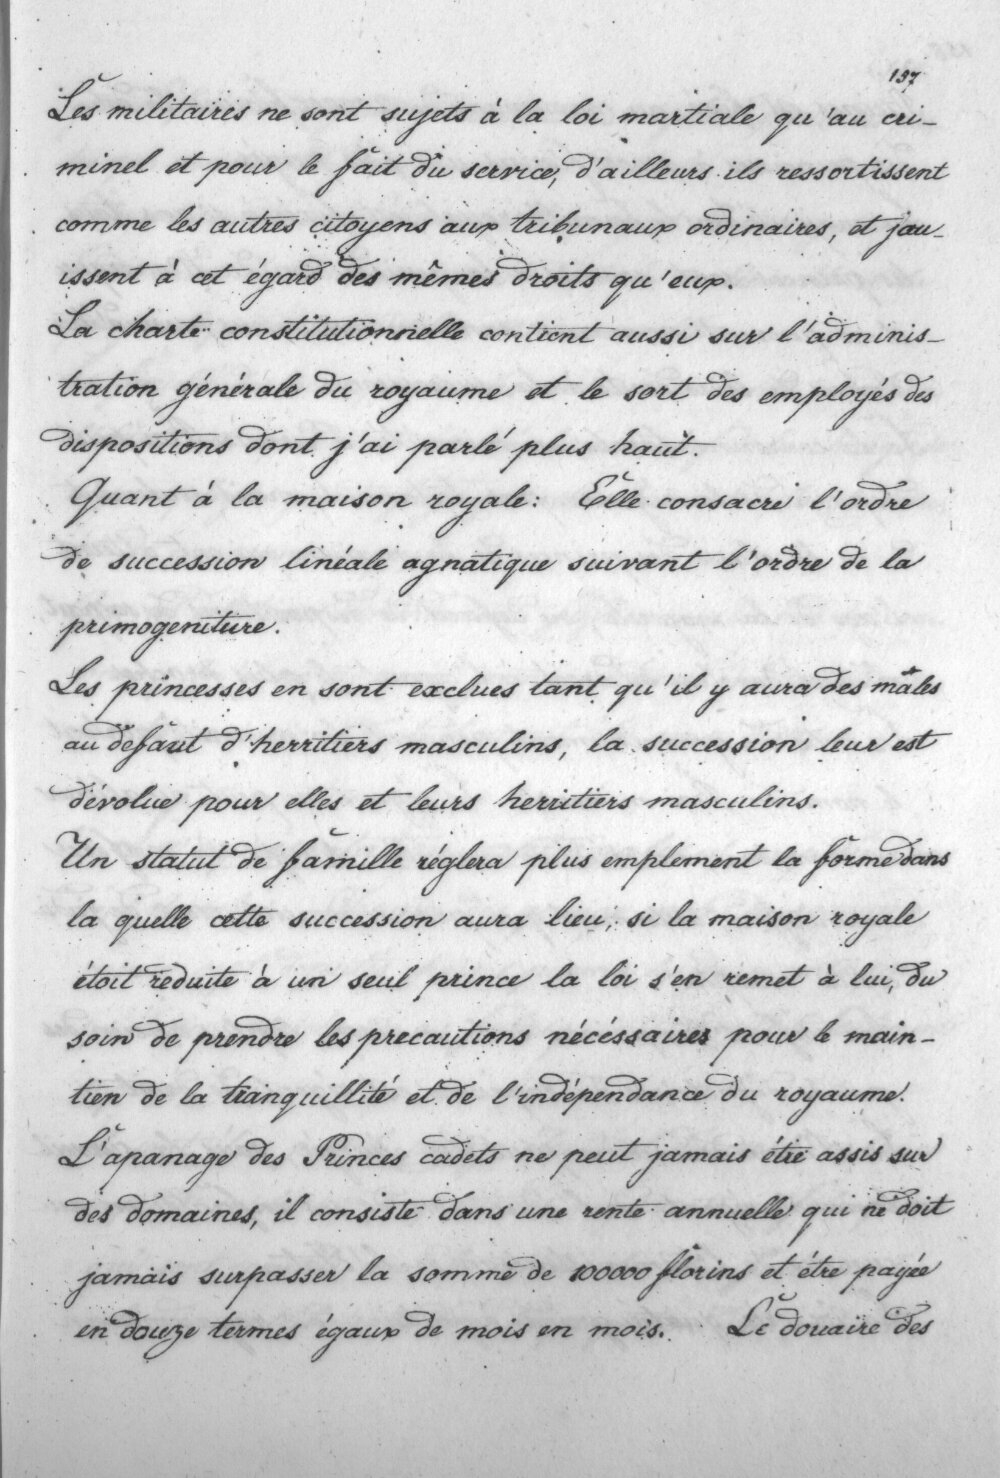 137
Les militaires ne sont sujets à la loi martiale qu'au cri-
minel et pour le fait du service, d'ailleurs ils ressortissent
comme les autres citoyens aux tribunaux ordinaires, et jou-
issent à cet égard des mêmes droits qu'eux.
La charte constitutionnelle contient aussi sur l'adminis-
tration générale du royaume et le sort des employés des
dispositions dont j'ai parlé plus haut.
Quant à la maison royale: Elle consacre l'ordre
de succession linéale agnatique suivant l'ordre de la
primogeniture.
Les princesses en sont exclues tant qu'il y aura des mâles
au defaut d'herritiers masculins, la succession leur est
dévolue pour elles et leurs herritiers masculins.
Un statut de famille réglera plus emplement la forme dans
la quelle cette succession aura lieu, si la maison royale
étoit reduite à un seul prince la loi s'en remet à lui, du
soin de prendre les precautions nécéssaires pour le main-
tien de la tranquillité et de l'indépendance du royaume.
L'apanage des Princes cadets ne peut jamais étre assis sur
des domaines, il consiste dans une rente annuelle qui ne doit
jamais surpasser la somme de 100000 florins et étre payée
en douze termes égaux de mois en mois. Le douaire des